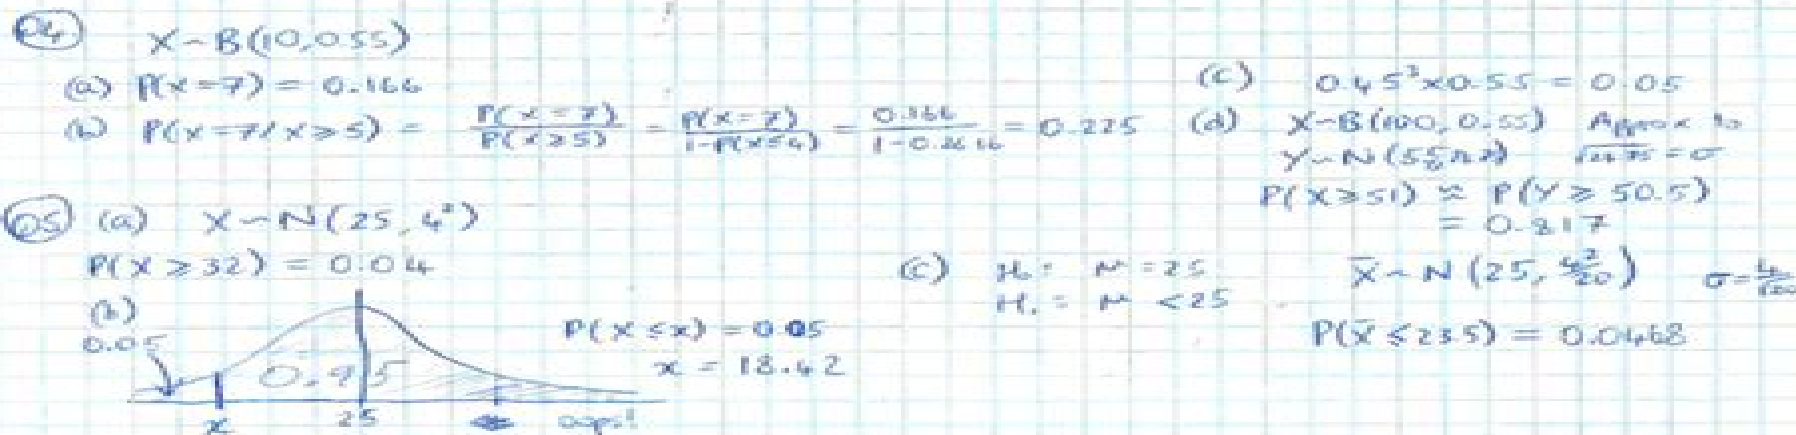 Q4 X~B(10,0.55)
(a) P(X=7) = 0.166
(b) P(X=7/X≥5) = P(X=7)/P(X≥5) = P(X=7)/1-P(X≤4) = 0.166/1-0.2616 = 0.225
(c) 0.45³x0.55 = 0.05
(d) X~B(100, 0.55) Approx to
√24.75 = σ
P(X≥51) ≈ P(Y≥50.5)
= 0.817
Q5 (a) X~N(25,4²)
P(X≥32) = 0.04
(b)
0.05
0.95
x 25 oops!
P(X≤x) = 0.05
x = 18.42
(c) H₀: μ = 25
H₁: μ < 25
X̄~N(25, 4²/20) σ=4/√20
P(X̄≤23.5) = 0.0468